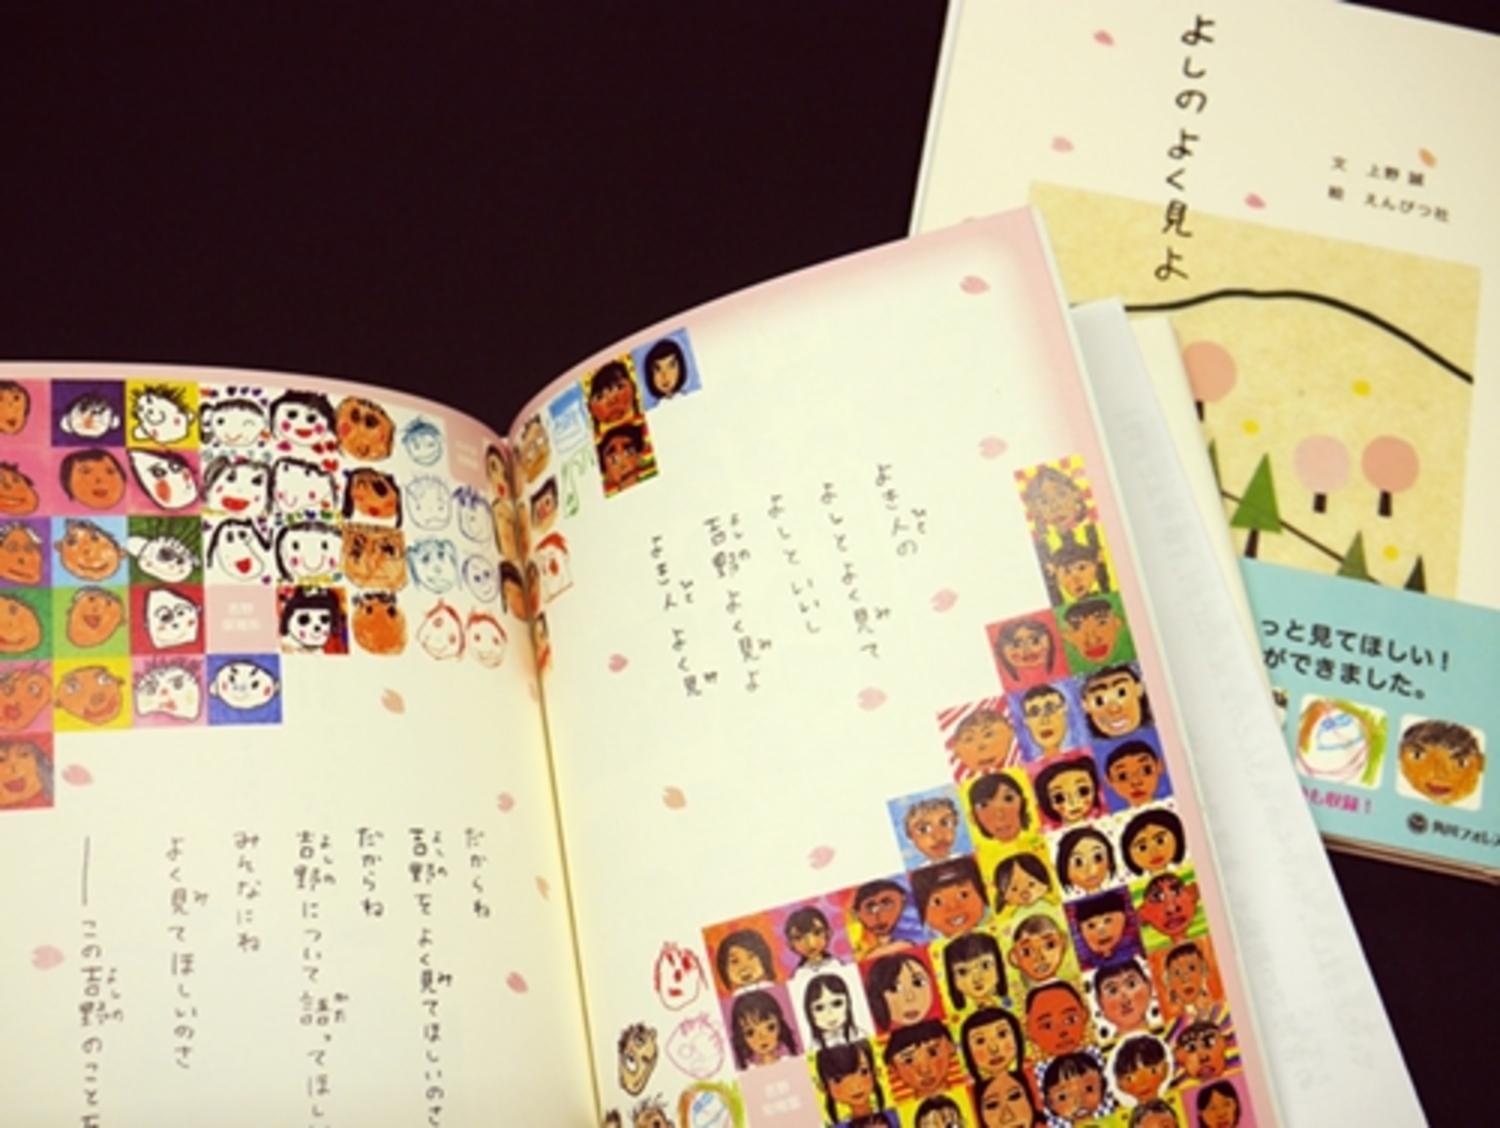 よしの よく見よ
文 上野 誠
絵 えんぴつ社
っと見てほしい！
ができました。
も収録！
角川フォレス
よき人の
よしとよく見て
よしと いいし
吉野 よく見よ
よき人 よく見
だからね
吉野を よく見てほしいのさ
だからね
吉野について 語ってほし
みんなにね
よく見てほしいのさ
――この吉野のことを